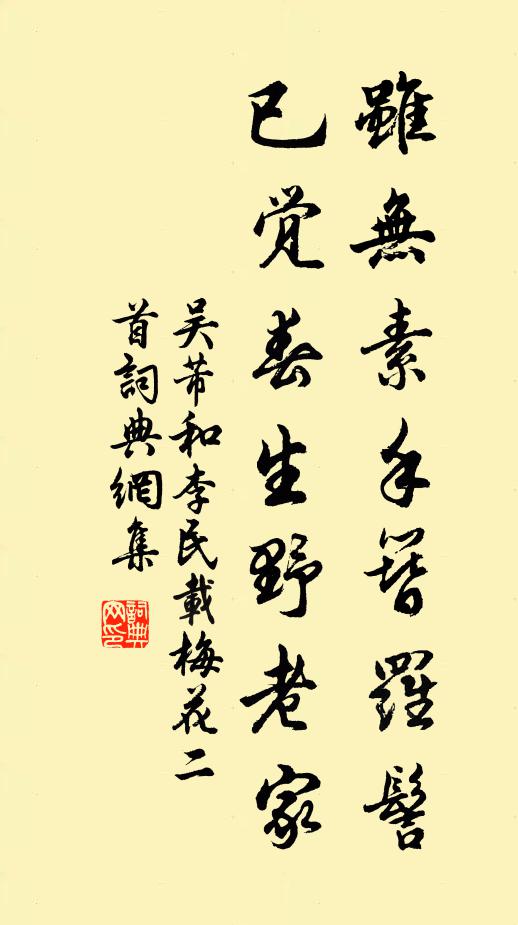 雖無素手簪羅髻
已觉春生野老家
吴芾和李民載梅花二
首詞典網集
詞典网印